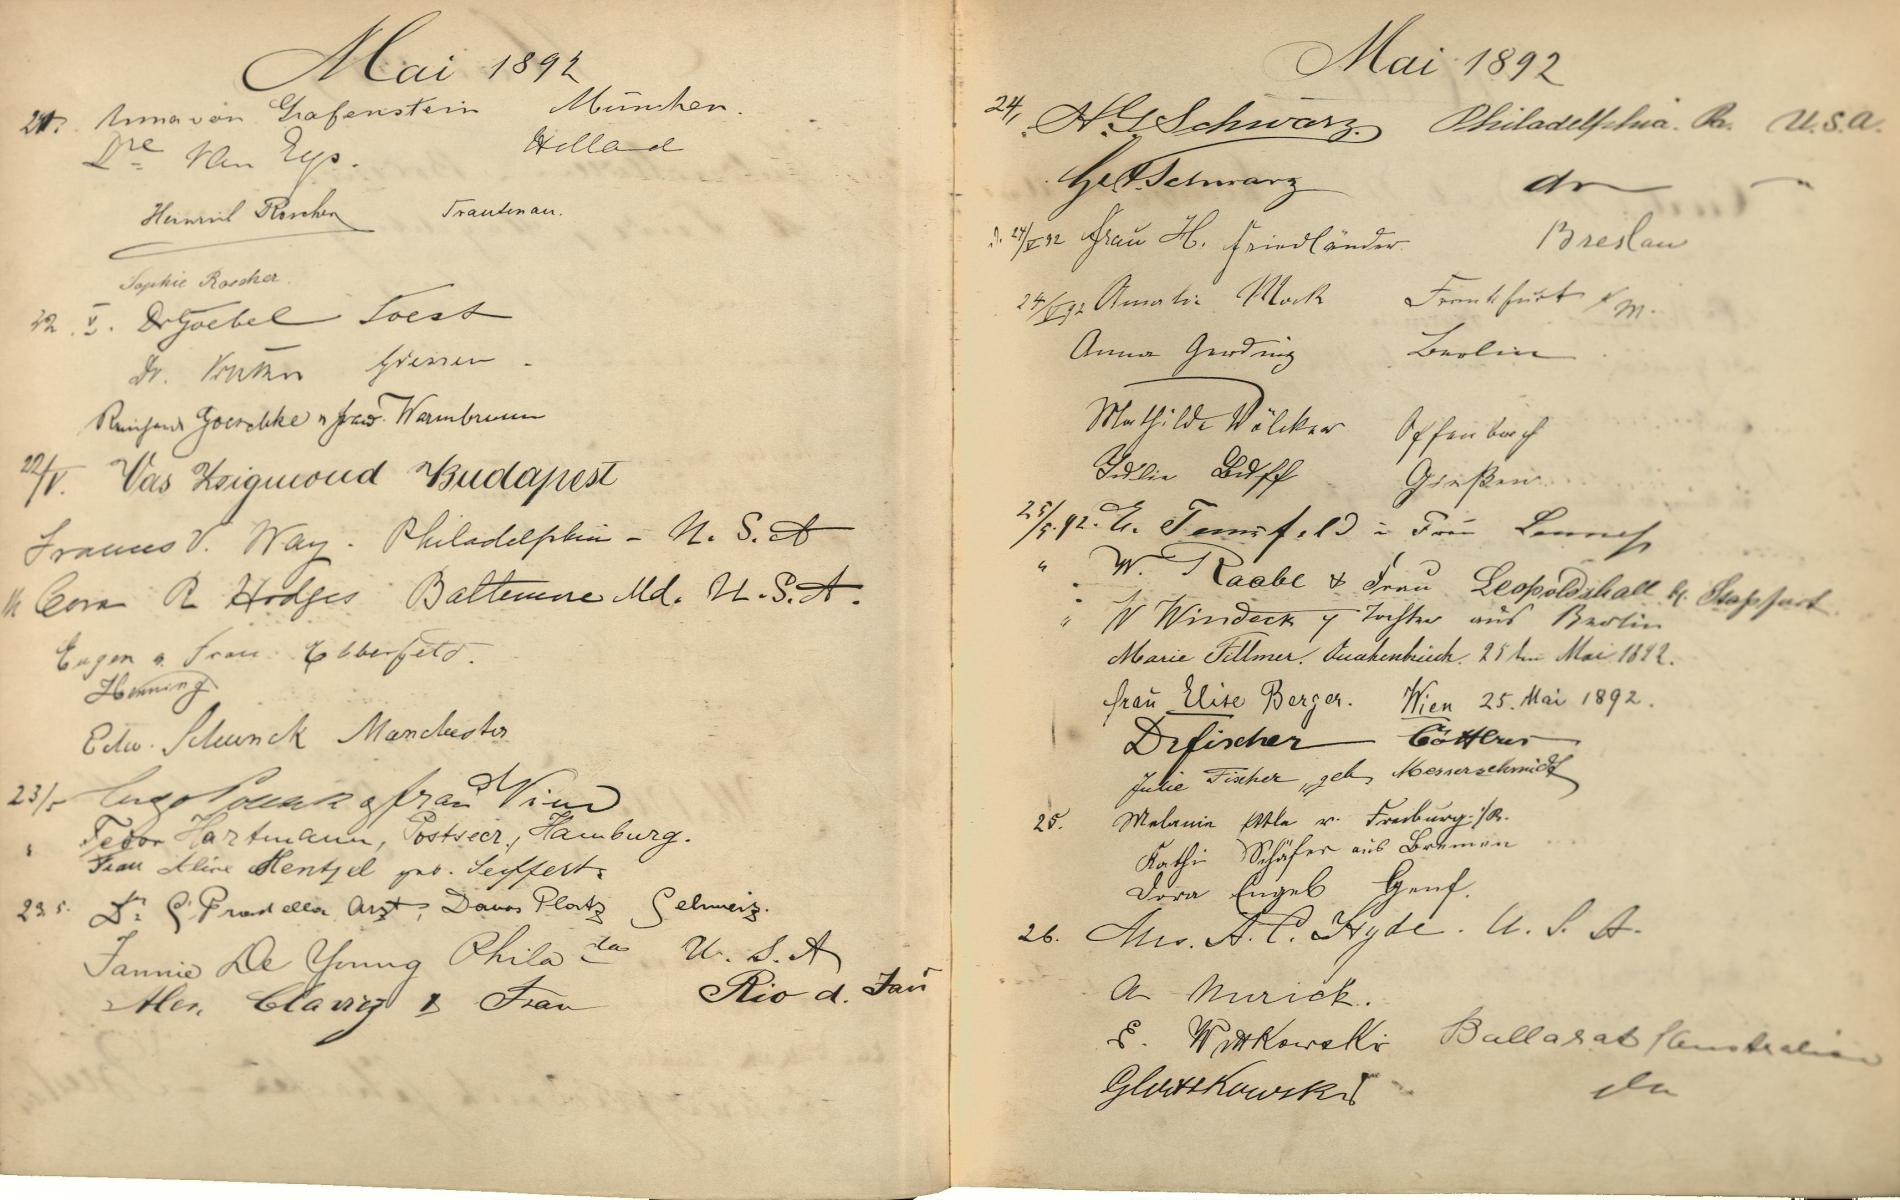 Mai 1892
21. Anna von Grafenstein München.
Dre Van Eys. Holland
Heinrich Roscher Trautenau.
Sophie Roscher.
22. V. Dr Goebel Soest
Dr. Giessen
Goeschke u Frau. Warmbrunn
22/V. Vas Zsigmond Budapest
Frances V. Way. Philadelphia - U. S. A
Cora R Hodges Baltimore Md. U.S.A.
Eugen u. Frau Elberfeld.
Henning
Edw. Schunck Manchester
23/5 Hugo Pollak & frau Wien
" Fedor Hartmann, Postsecr., Hamburg.
Frau Aline Hentzel geb. Seyffert.
23. 5. Dr. Arzt, Davos Platz Schweiz.
Fannie De Young Phila U. S. A
Alex. & Frau Rio d. Jan
Mai 1892
24, H.G Schwarz. Philadelphia. Pa. U.S.A.
Schwarz do
d. 24/V 92 Frau H. Friedländer Breslau
24/V 92 Amalie Mack Frankfurt a/M.
Anna Gerding Berlin
Mathilde Völcker Offenbach
Julie Buff Gießen
25/5. 92. u Frau Lennep
" W. Raabe & Frau Leopoldshall b/ Stassfurt
" W Windeck & Tochter aus Berlin
Marie Tillmer. Quakenbrück. 25ten Mai 1892.
Frau Elise Berger. Wien 25. Mai 1892.
Dr Fischer
Julie Fischer, geb. Messerschmidt
25. Melanie v. Freiburg i/B.
Käthi Schäfer aus Bremen
Dora Engel Genf.
26. Mrs. A. C. Hyde. U. S. A.
A Murick.
E. Wittkowski Ballarat Australien
G Wittkowski do